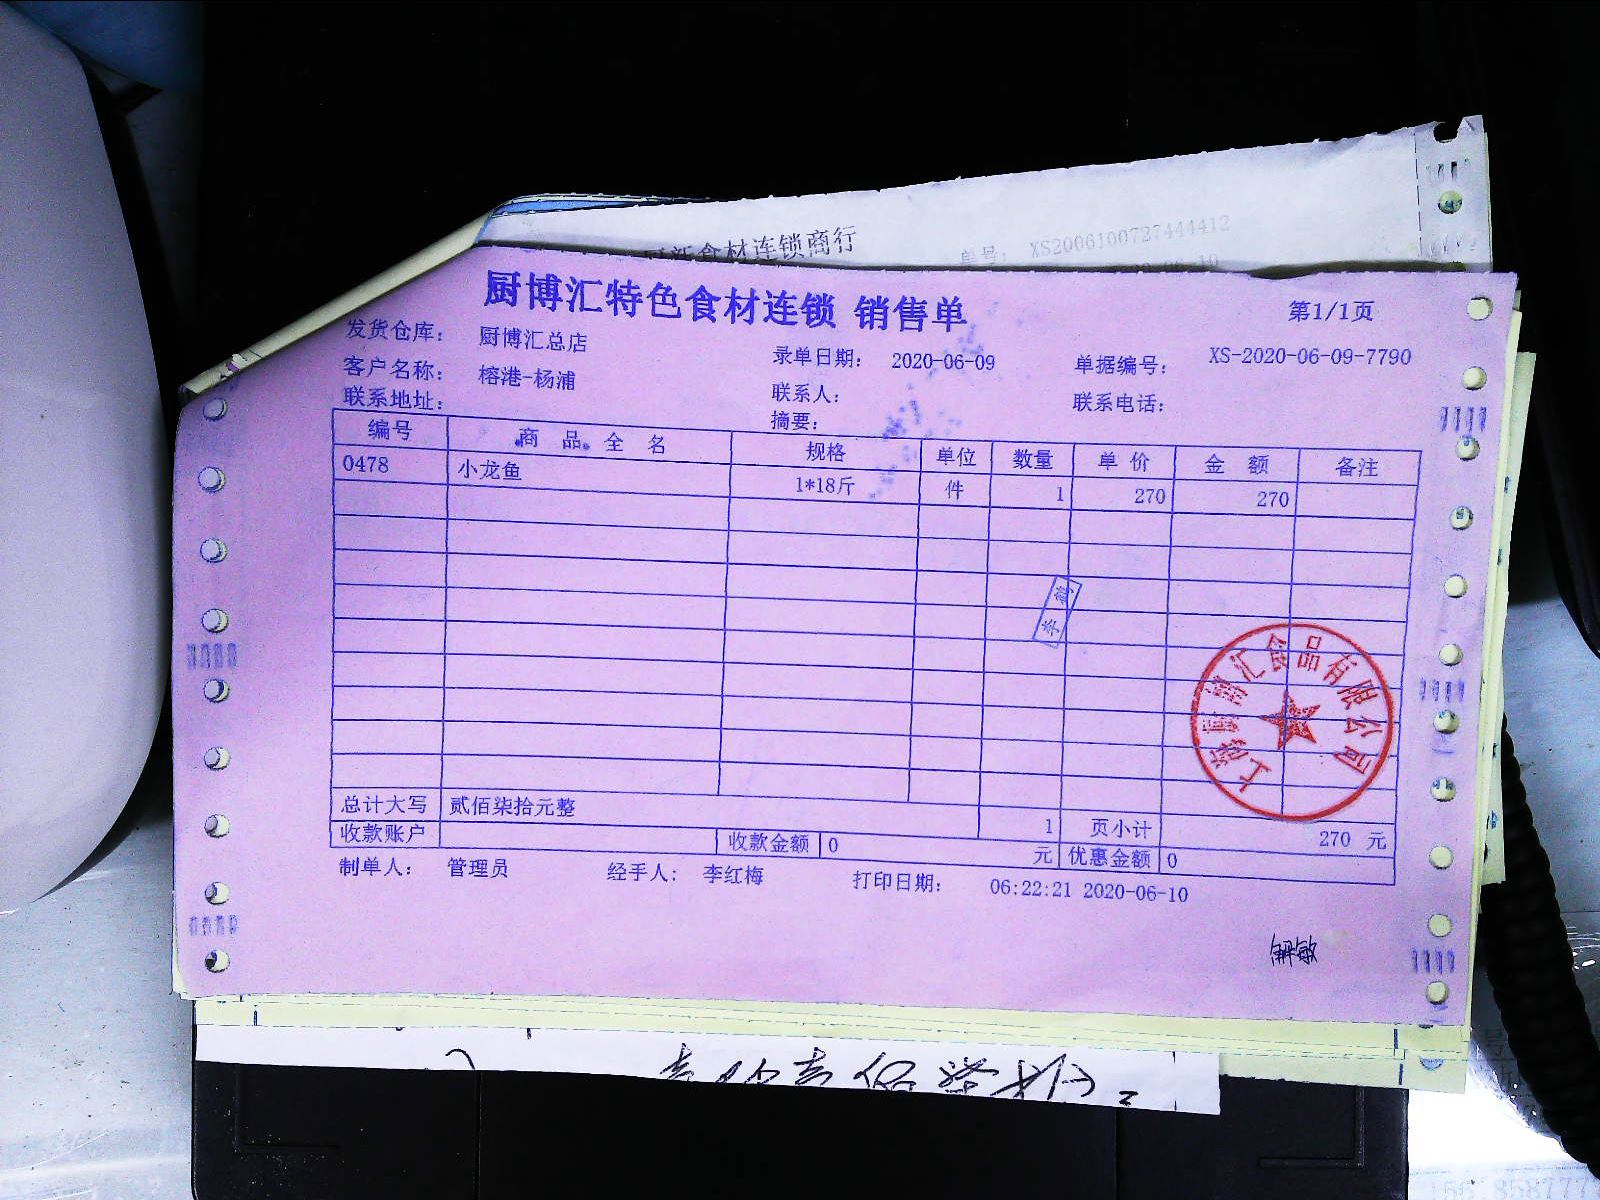 食材连锁商行
单号: XS2006100727444412
厨博汇特色食材连锁 销售单
第1/1页
发货仓库: 厨博汇总店
录单日期: 2020-06-09
单据编号: XS-2020-06-09-7790
客户名称: 榕港-杨浦
联系人:
联系电话:
联系地址:
摘要:
编号 商品全名 规格 单位 数量 单价 金额 备注
0478 小龙鱼 1*18斤 件 1 270 270
李鹤
上海厨博汇食品有限公司
总计大写 贰佰柒拾元整 1 页小计 270 元
收款账户 收款金额 0 元 优惠金额 0
制单人: 管理员 经手人: 李红梅 打印日期: 06:22:21 2020-06-10
解敏